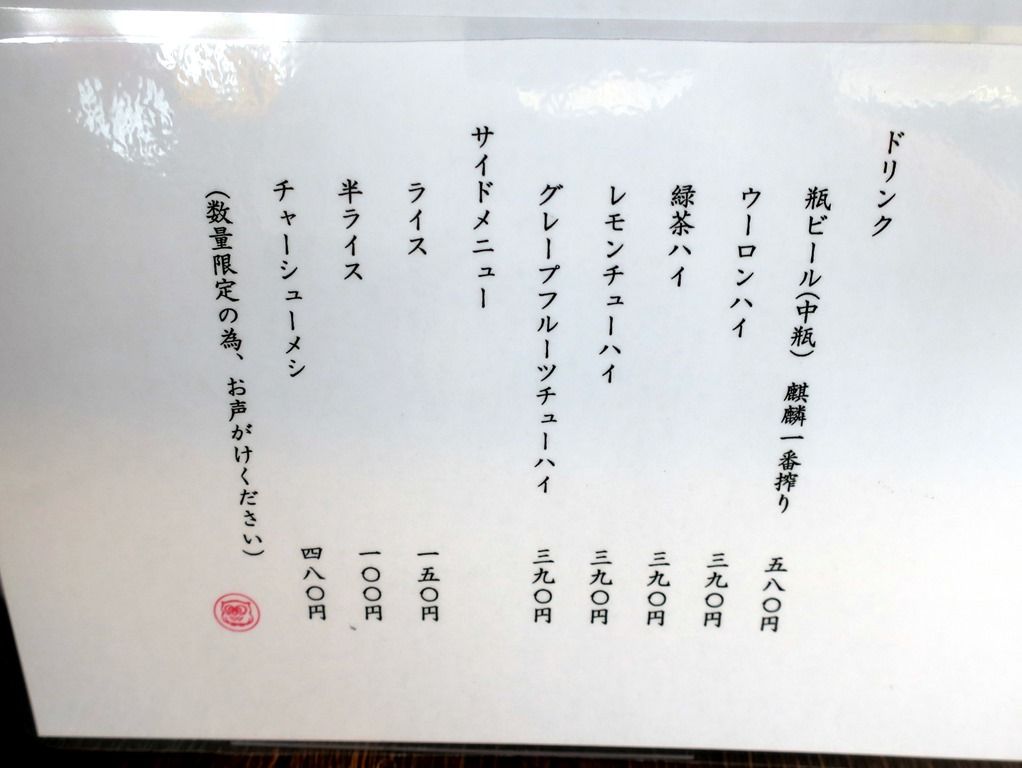 ドリンク
瓶ビール(中瓶) 麒麟一番搾り 五八〇円
ウーロンハイ 三九〇円
緑茶ハイ 三九〇円
レモンチューハイ 三九〇円
グレープフルーツチューハイ 三九〇円
サイドメニュー
ライス 一五〇円
半ライス 一〇〇円
チャーシューメシ 四八〇円
(数量限定の為、お声がけください)